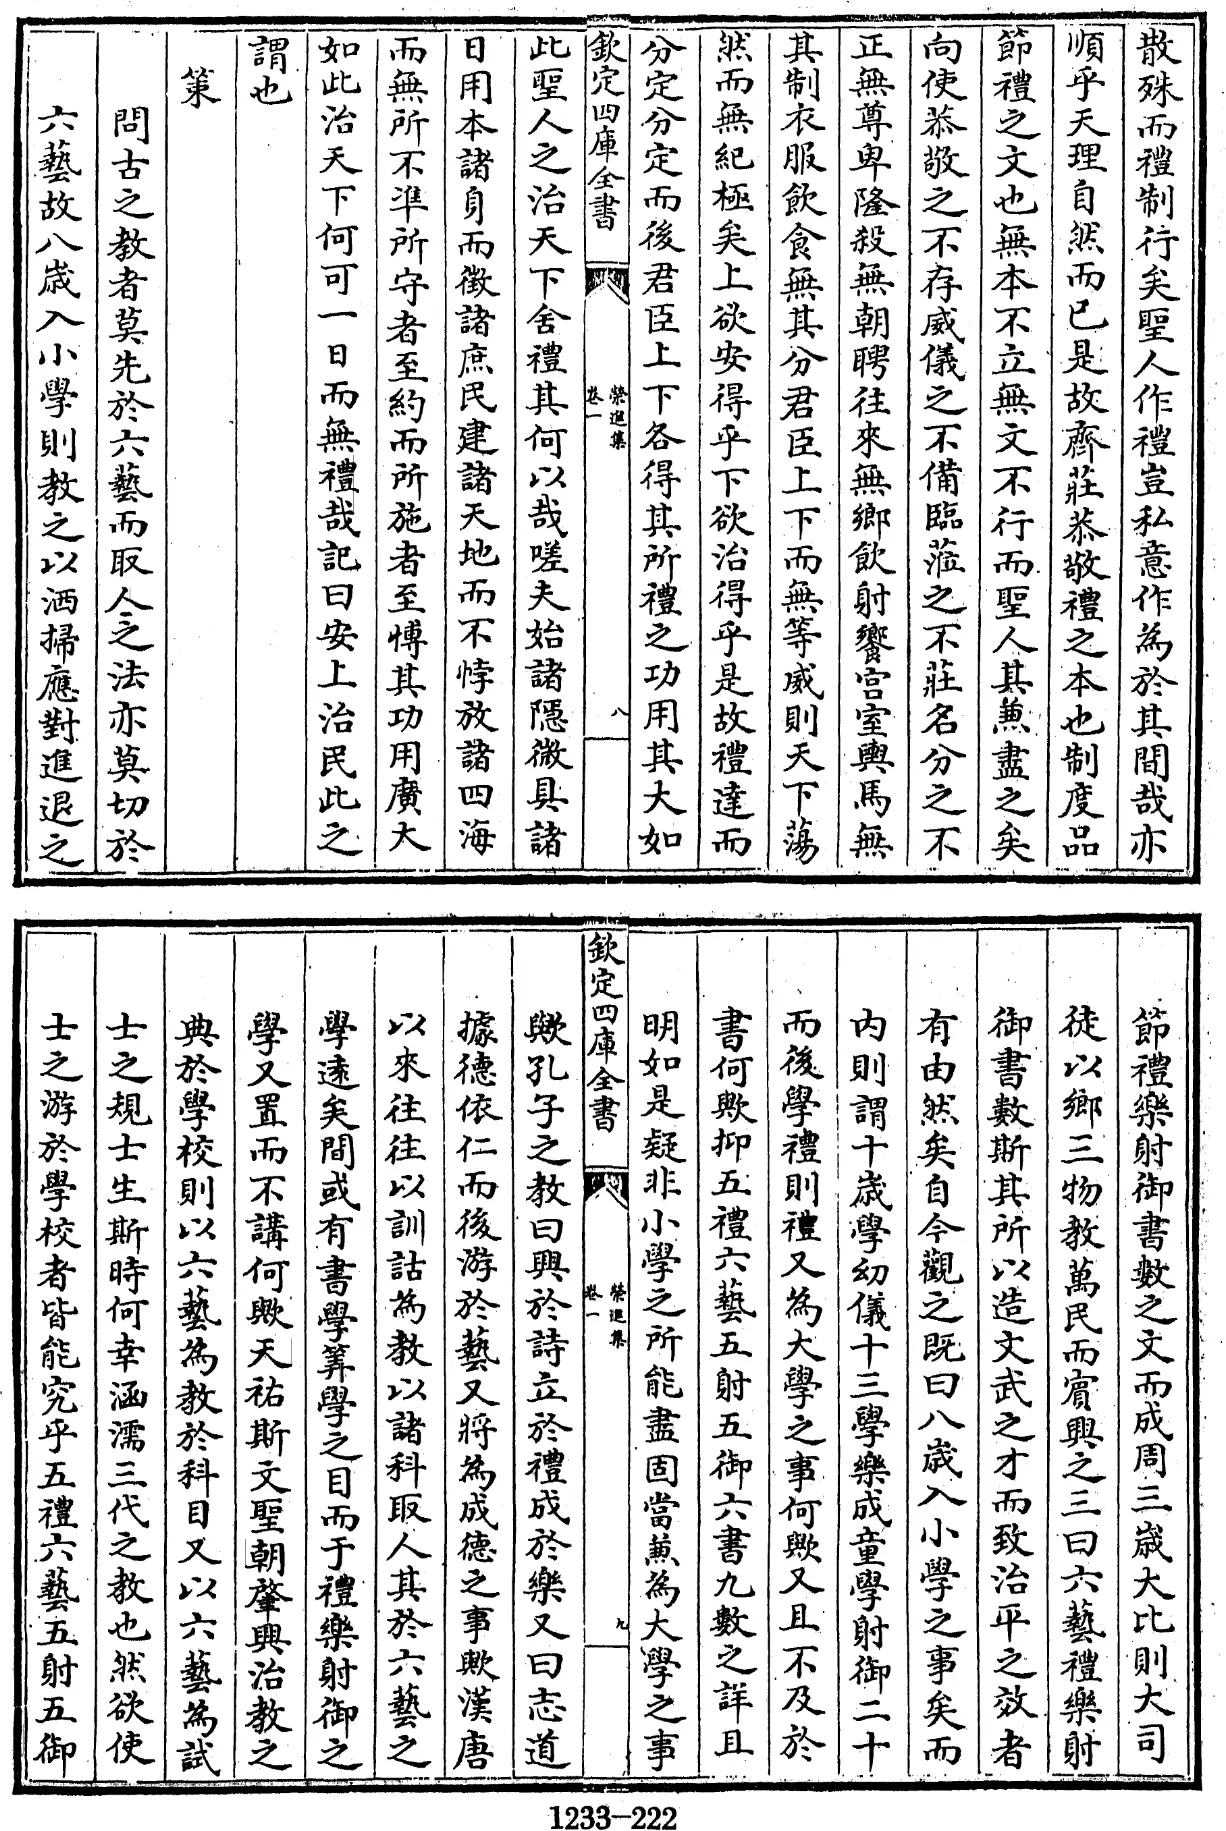 散殊而禮制行矣聖人作禮豈私意作為於其間哉亦
順乎天理自然而已是故齊莊恭敬禮之本也制度品
節禮之文也無本不立無文不行而聖人其兼盡之矣
向使恭敬之不存威儀之不備臨蒞之不莊名分之不
正無尊卑隆殺無朝聘往來無鄉飲射饗宫室輿馬無
其制衣服飲食無其分君臣上下而無等威則天下蕩
然而無紀極矣上欲安得乎下欲治得乎是故禮達而
分定分定而後君臣上下各得其所禮之功用其大如
欽定四庫全書
榮進集
卷一
八
此聖人之治天下舍禮其何以哉嗟夫始諸隱微具諸
日用本諸身而徵諸庶民建諸天地而不悖放諸四海
而無所不準所守者至約而所施者至博其功用廣大
如此治天下何可一日而無禮哉記曰安上治民此之
謂也
策
問古之教者莫先於六藝而取人之法亦莫切於
六藝故八歲入小學則教之以洒掃應對進退之
節禮樂射御書數之文而成周三歲大比則大司
徒以鄉三物教萬民而賓興之三曰六藝禮樂射
御書數斯其所以造文武之才而致治平之效者
有由然矣自今觀之既曰八歲入小學之事矣而
内則謂十歲學幼儀十三學樂成童學射御二十
而後學禮則禮又為大學之事何歟又且不及於
書何歟抑五禮六藝五射五御六書九數之詳且
明如是疑非小學之所能盡固當兼為大學之事
欽定四庫全書
榮進集
卷一
九
歟孔子之教曰興於詩立於禮成於樂又曰志道
據德依仁而後游於藝又將為成德之事歟漢唐
以來往往以訓詁為教以諸科取人其於六藝之
學遠矣間或有書學筭學之目而于禮樂射御之
學又置而不講何歟天祐斯文聖朝肇興治教之
典於學校則以六藝為教於科目又以六藝為試
士之規士生斯時何幸涵濡三代之教也然欲使
士之游於學校者皆能究乎五禮六藝五射五御
1233-222